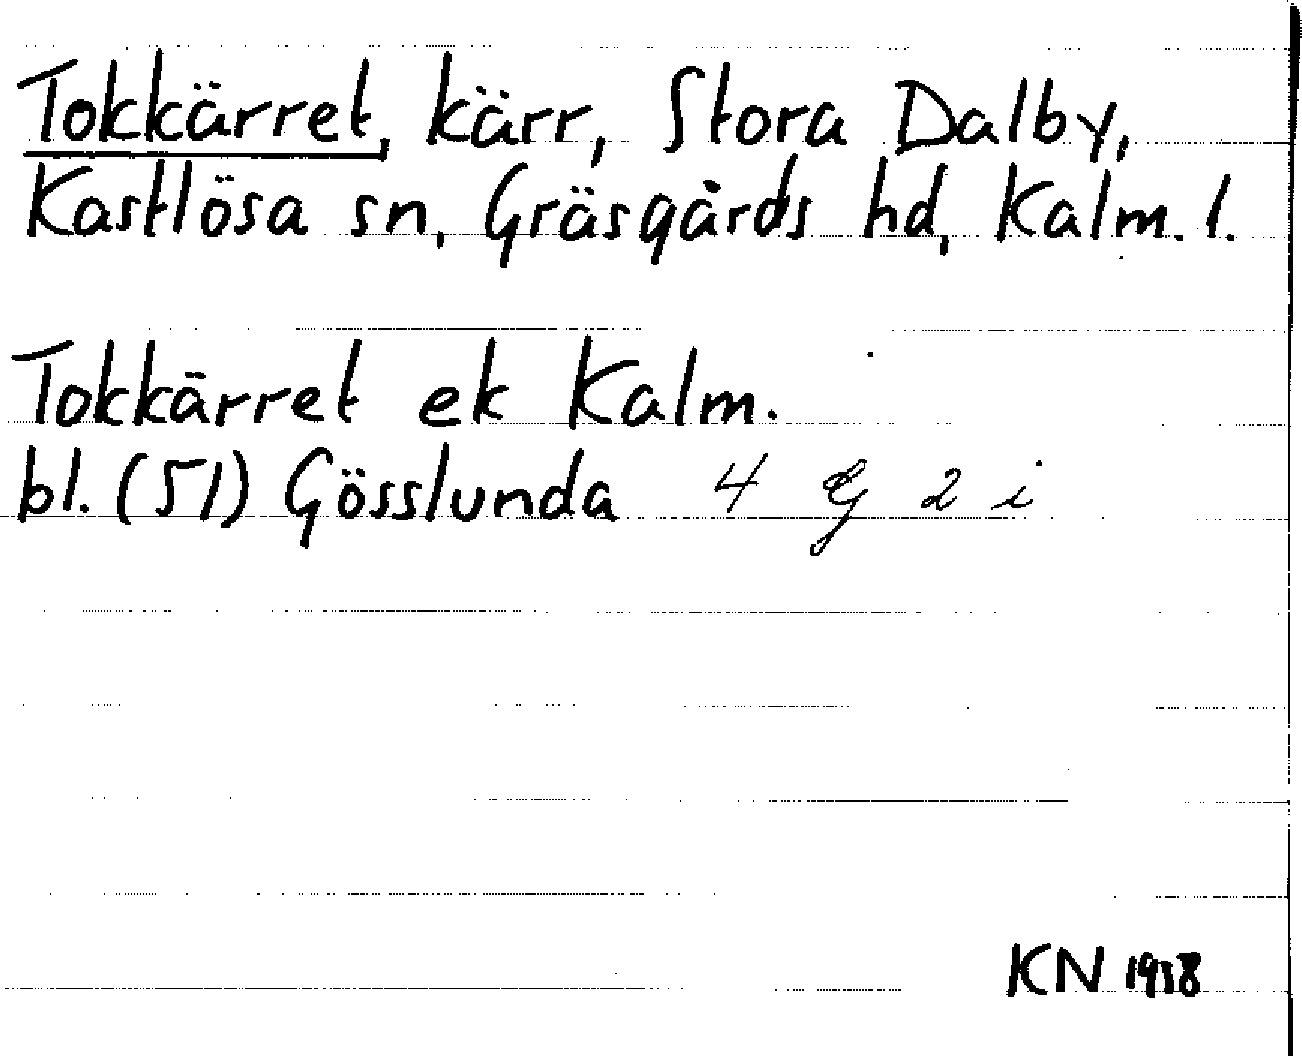 Tokkärret, kärr, Stora Dalby,
Kastlösa sn, Gräsgårds hd, Kalm. l.
Tokkärret ek Kalm.
bl. (51) Gösslunda 4 G 2 i
KN 1958